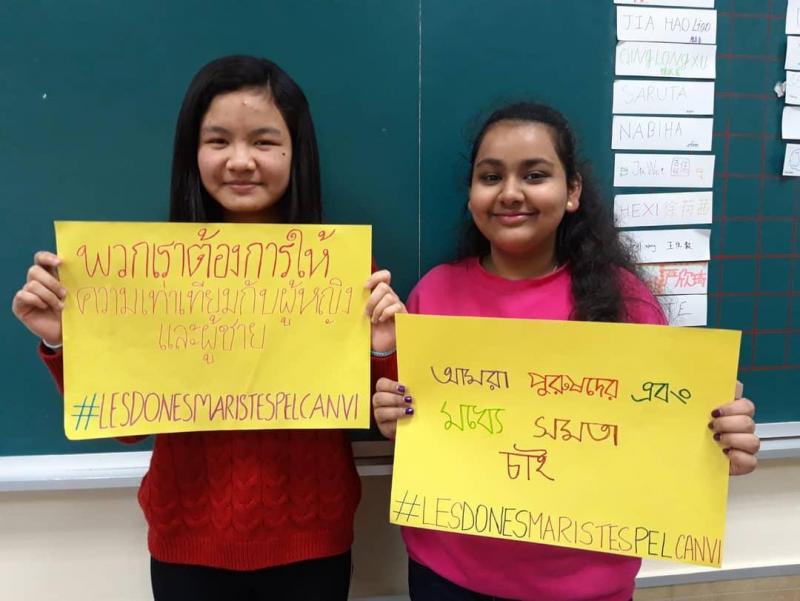 พวกเราต้องการให้
ความเท่าเทียมกับผู้หญิง
และผู้ชาย
#LESDONESMARISTESPELCANVI
আমরা পুরুষদের এবং
মধ্যে সমতা
চাই
#LESDONESMARISTESPELCANVI
JIA HAO Liao
QINGLONG XU
SARUTA
NABIHA
HEXI